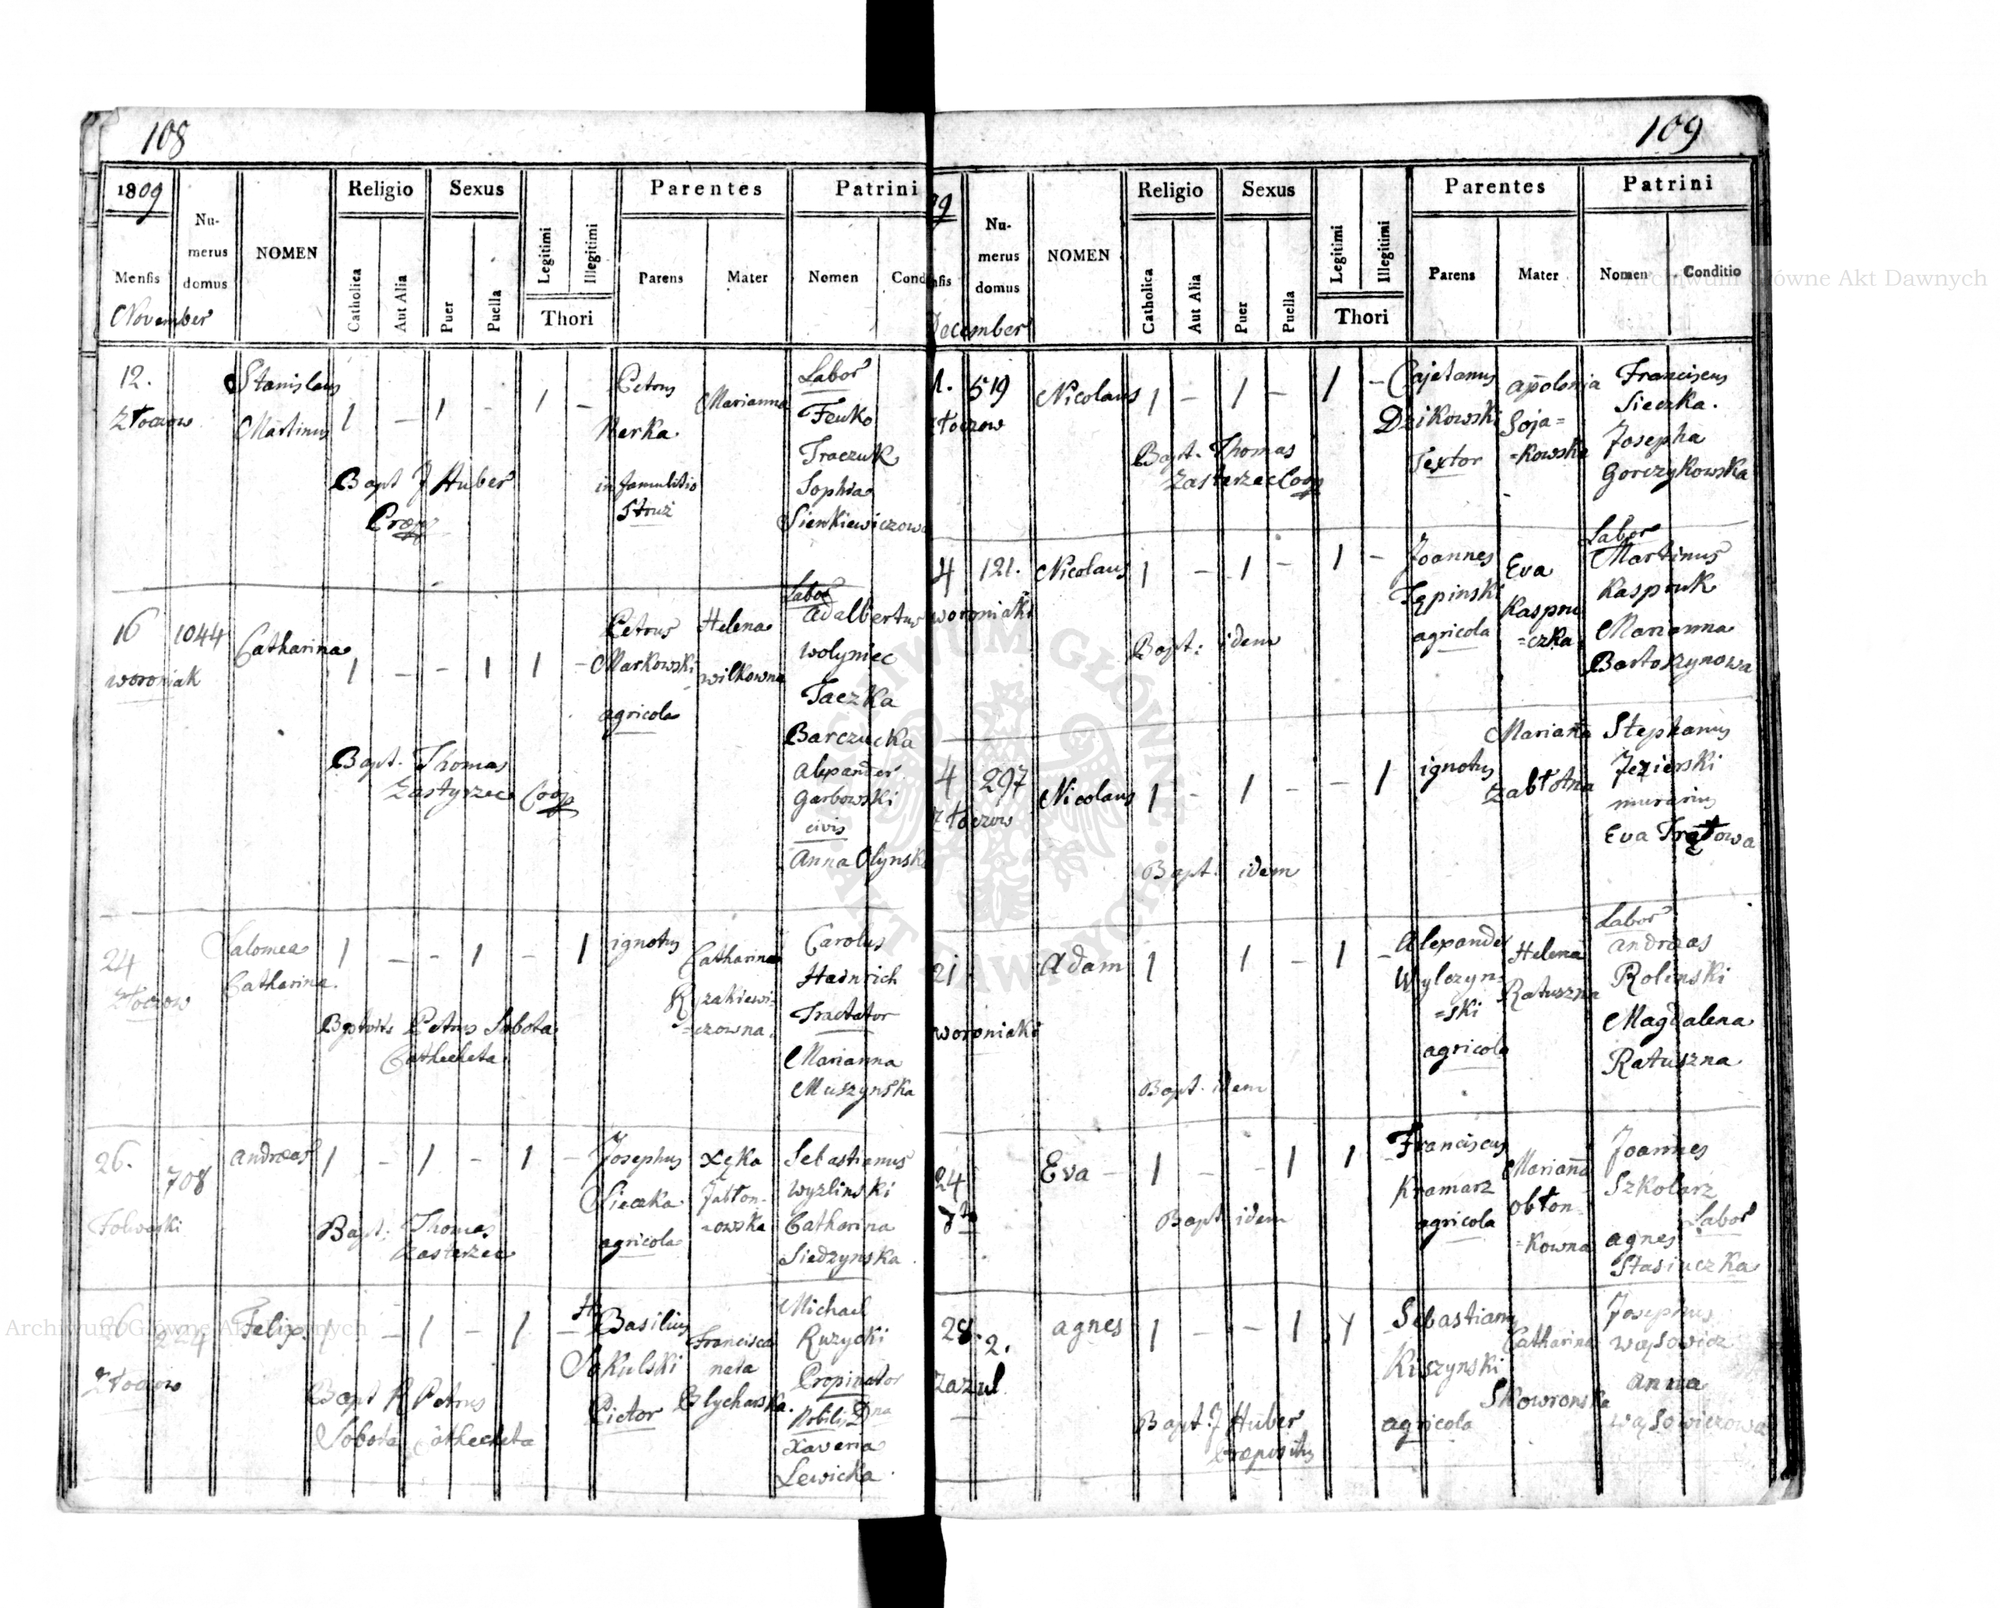 108
1809
Mensis
November
Nu-
merus
domus
NOMEN
Religio
Catholica
Aut Alia
Sexus
Puer
Puella
Legitimi
Illegitimi
Thori
Parentes
Parens
Mater
Patrini
Nomen
Cond
12.
Złoczow
Stanislaus
Martinus
1 – 1 – 1 –
Bapt J Huber
Petrus
Marianna
in famulitio
Labor
Traczuk
Sophia
Sienkiewiczowa
16
1044
woroniak
Catharina
1 – – 1 1 –
Bapt. Thomas
Zastyrzec Coop
Petrus
Markowski
agricola
Helena
wilkowna
Labor
adalbertus
wolyniec
Taczka
Barczucka
Alexander
Garbowski
civis
Anna Olynsk
24
Złoczow
Salomea
Catharina.
1 – – 1 – 1
Petrus Sobota
Cathecheta.
ignotus
Catharina
Rzakiewi-
=czowna.
Carolus
Heinrich
Tractator
Marianna
Muszynska
26.
708
Folwarki
Andreas
1 – 1 – 1 –
Bapt: Thomas
Zasterzec
Josephus
Sieczka
agricola
Jabłon-
=owska
Sebastianus
wyzlinski
Catharina
Siedzynska.
26
224
Złoczow
Felix.
1 – 1 – 1 –
Bapt R Petrus
Sobota Cathecheta
Basilius
Sokulski
Pictor
Francisca
nata
Blycharska.
Michael
Ruzycki
Propinator
Nobilis Dna
Xaveria
Lewicka.
109
09
nsis
December
Nu-
merus
domus
NOMEN
Religio
Catholica
Aut Alia
Sexus
Puer
Puella
Legitimi
Illegitimi
Thori
Parentes
Parens
Mater
Patrini
Nomen
Conditio
1. 519
złoczow
Nicolaus
1 – 1 – 1 –
Bapt. Thomas
Zasterzec Coop
Cajetanus
Dzikowski
Textor
apolonia
Soja=
=kowska
Franciscus
Sieczka.
Josepha
Gorczykowska
4 121.
woroniaki
Nicolaus
1 – 1 – 1 –
Bapt: idem
Joannes
Tępinski
agricola
Eva
Kaspru
=czka
Labor
Martinus
Kaspruk
Marianna
Bartoszynowa
4 297
złoczow
Nicolaus
1 – 1 – – 1
Bapt: idem
ignotus
Marianna
Zabłotna
Stephanus
Jezierski
murarius
Eva
21.
woroniaki
Adam
1 1 – 1 –
Bapt. idem
Alexander
Wylczyn-
=ski
agricola
Helena
Ratuszna
Labor
andreas
Rolinski
Magdalena
Ratuszna
24
Eva
1 – – 1 1 –
Bapt idem
Franciscus
Kramarz
agricola
Marianna
obłon-
=kowna
Joannes
Szkolarz
Labor
agnes
Stasiuczka
28. 2.
Zazul.
agnes
1 – – 1 1 –
Bapt. J Huber
Praepositus
Sebastianus
Kiszynski
agricola
Catharina
Skowronska
Josephus
wąsowicz
anna
wąsowiczowa
Archiwum Główne Akt Dawnych
Archiwum Główne Akt Dawnych
ARCHIWUM GŁÓWNE AKT DAWNYCH